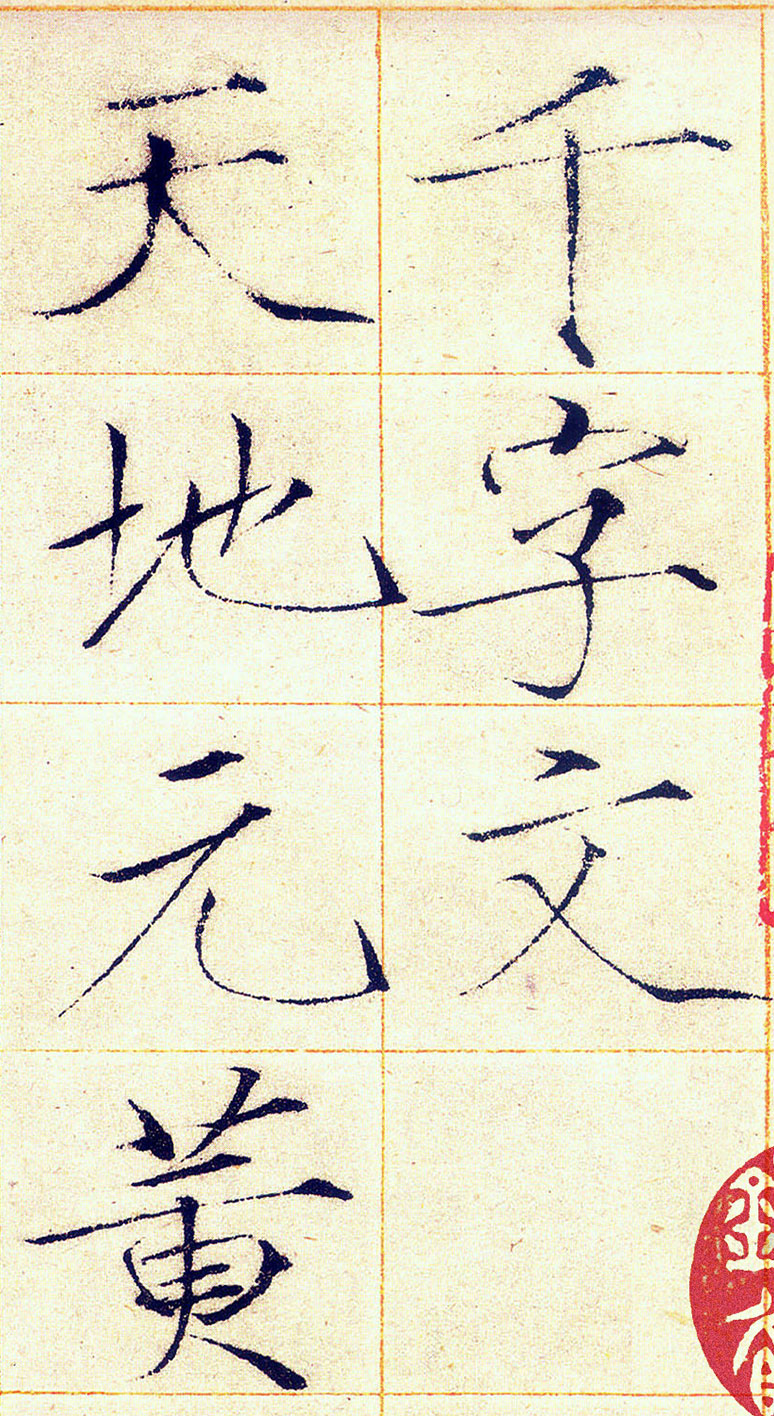 千字文
天地元黄